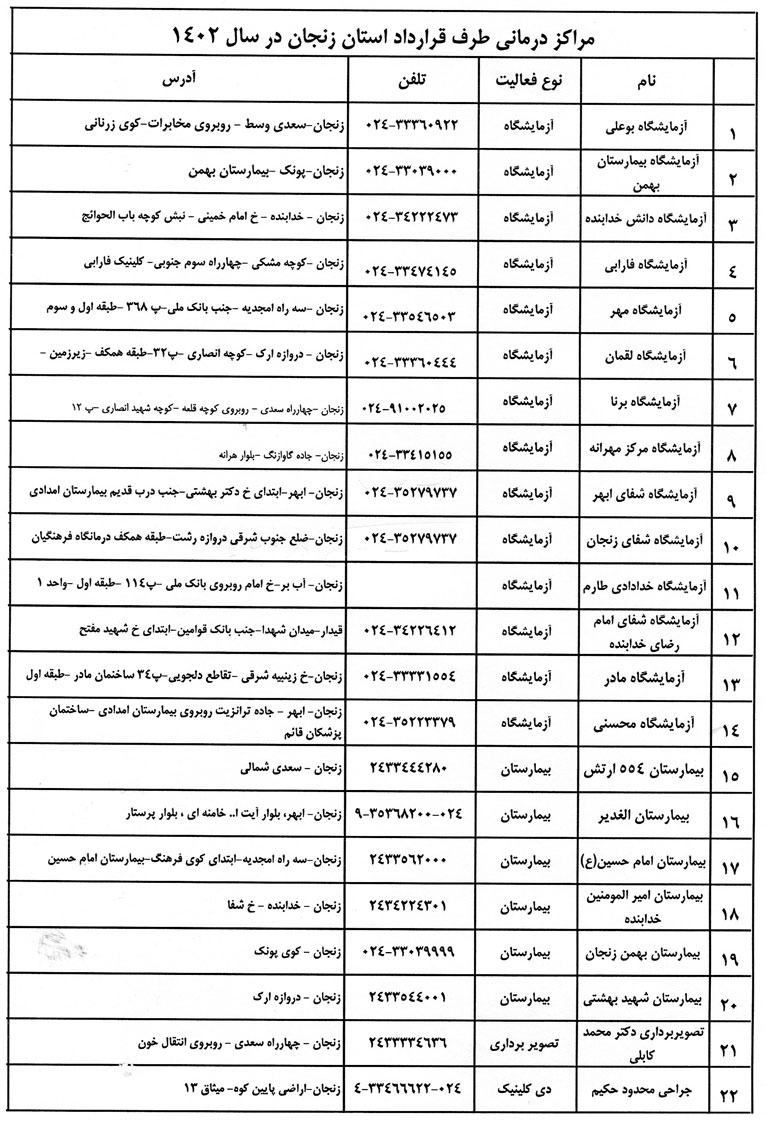 مراکز درمانی طرف قرارداد استان زنجان در سال ۱۴۰۲
نام نوع فعالیت تلفن آدرس
۱ آزمایشگاه بوعلی آزمایشگاه ۰۲۴-۳۳۳۶۰۹۲۲ زنجان-سعدی وسط - روبروی مخابرات-کوی زرنانی
۲ آزمایشگاه بیمارستان بهمن آزمایشگاه ۰۲۴-۳۳۰۳۹۰۰۰ زنجان-پونک -بیمارستان بهمن
۳ آزمایشگاه دانش خدابنده آزمایشگاه ۰۲۴-۳۴۲۲۲۴۷۳ زنجان - خدابنده - خ امام خمینی - نبش کوچه باب الحوائج
۴ آزمایشگاه فارابی آزمایشگاه ۰۲۴-۳۳۴۷۴۱۴۵ زنجان -کوچه مشکی -چهارراه سوم جنوبی- کلینیک فارابی
۵ آزمایشگاه مهر آزمایشگاه ۰۲۴-۳۳۵۴۶۵۰۳ زنجان- سه راه امجدیه -جنب بانک ملی-پ ۳۶۸ -طبقه اول و سوم
۶ آزمایشگاه لقمان آزمایشگاه ۰۲۴-۳۳۳۶۰۴۴۴ زنجان - دروازه ارک -کوچه انصاری -پ۳۲-طبقه همکف -زیرزمین -
۷ آزمایشگاه برنا آزمایشگاه ۰۲۴-۹۱۰۰۲۰۲۵ زنجان -چهارراه سعدی - روبروی کوچه قلعه -کوچه شهید انصاری -پ ۱۲
۸ آزمایشگاه مرکز مهرانه آزمایشگاه ۰۲۴-۳۳۴۱۵۱۵۵ زنجان- جاده گاوازنگ -بلوار هرانه
۹ آزمایشگاه شفای ابهر آزمایشگاه ۰۲۴-۳۵۲۷۹۷۳۷ زنجان- ابهر-ابتدای خ دکتر بهشتی-جنب درب قدیم بیمارستان امدادی
۱۰ آزمایشگاه شفای زنجان آزمایشگاه ۰۲۴-۳۵۲۷۹۷۳۷ زنجان-ضلع جنوب شرقی دروازه رشت-طبقه همکف درمانگاه فرهنگیان
۱۱ آزمایشگاه خدادادی طارم آزمایشگاه زنجان- آب بر-خ امام روبروی بانک ملی -پ۱۱۴ -طبقه اول -واحد ۱
۱۲ آزمایشگاه شفای امام رضای خدابنده آزمایشگاه ۰۲۴-۳۴۲۲۶۴۱۲ قیدار-میدان شهدا-جنب بانک قوامین-ابتدای خ شهید مفتح
۱۳ آزمایشگاه مادر آزمایشگاه ۰۲۴-۳۳۳۳۱۵۵۴ زنجان-خ زینبیه شرقی -تقاطع دلجویی-پ۳۴ ساختمان مادر -طبقه اول
۱۴ آزمایشگاه محسنی آزمایشگاه ۰۲۴-۳۵۲۲۳۳۷۹ زنجان- ابهر - جاده ترانزیت روبروی بیمارستان امدادی -ساختمان پزشکان قائم
۱۵ بیمارستان ۵۵۴ ارتش بیمارستان ۲۴۳۳۴۴۴۲۸۰ زنجان - سعدی شمالی
۱۶ بیمارستان الغدیر بیمارستان ۹-۳۵۳۶۸۲۰۰-۰۲۴ زنجان- ابهر، بلوار آیت ا.. خامنه ای ، بلوار پرستار
۱۷ بیمارستان امام حسین(ع) بیمارستان ۲۴۳۳۵۶۲۰۰۰ زنجان-سه راه امجدیه-ابتدای کوی فرهنگ-بیمارستان امام حسین
۱۸ بیمارستان امیر المومنین خدابنده بیمارستان ۲۴۳۴۲۲۴۳۰۱ زنجان - خدابنده - خ شفا
۱۹ بیمارستان بهمن زنجان بیمارستان ۰۲۴-۳۳۰۳۹۹۹۹ زنجان - کوی پونک
۲۰ بیمارستان شهید بهشتی بیمارستان ۲۴۳۳۵۴۴۰۰۱ زنجان - دروازه ارک
۲۱ تصویربرداری دکتر محمد کابلی تصویر برداری ۲۴۳۳۳۳۴۶۳۶ زنجان - چهارراه سعدی - روبروی انتقال خون
۲۲ جراحی محدود حکیم دی کلینیک ۴-۳۳۴۶۶۶۲۲-۰۲۴ زنجان-اراضی پایین کوه- میثاق ۱۳